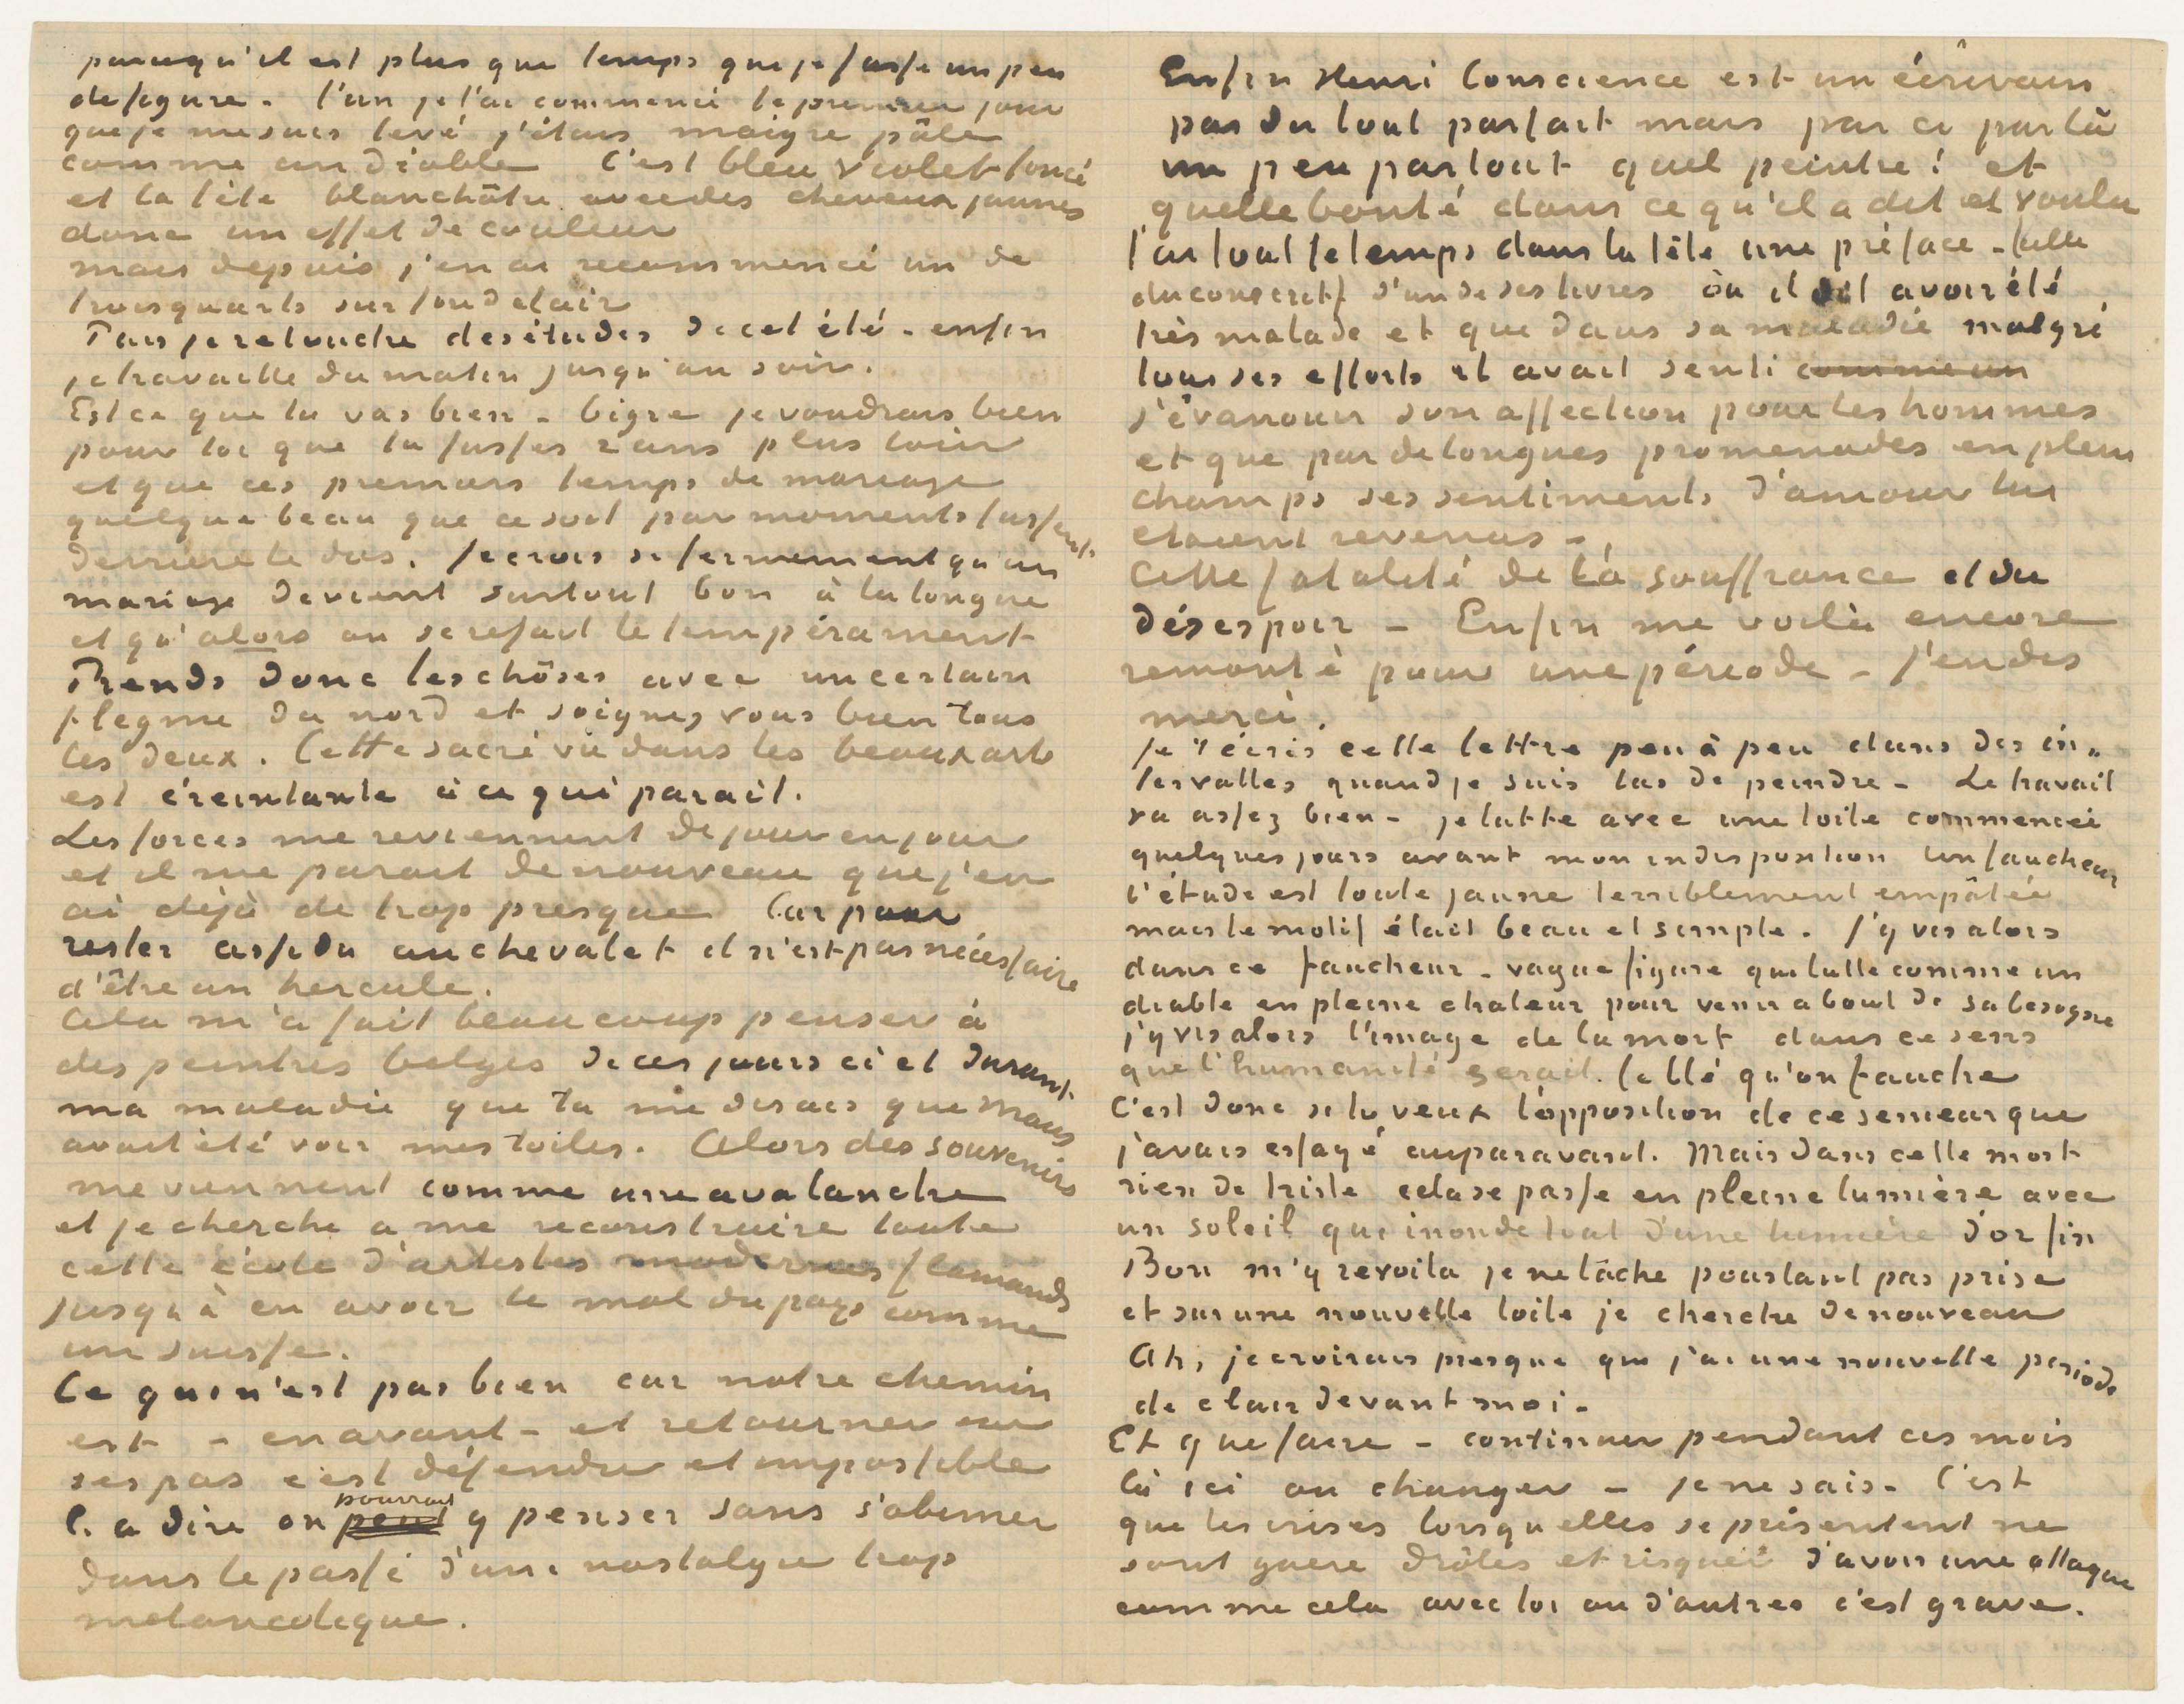 parcequ'il est plus que temps que je fasse un peu
de figure. l'un je l'ai commencé le premier jour
que je me suis levé j'étais maigre pâle
comme un diable C'est bleu violet foncé
et la tête blanchâtre avec des cheveux jaunes
donc un effet de couleur
mais depuis j'en ai recommencé un de
trois quarts sur fond clair
Puis je retouche des études de cet été - enfin
je travaille du matin jusqu'au soir.
Est ce que tu vas bien - bigre je voudrais bien
pour toi que tu fusses 2 ans plus loin
et que ces premiers temps de mariage
quelque beau que ce soit par moments fussent
derrière le dos. Je crois si fermement qu'un
mariage devient surtout bon à la longue
et qu'alors on se refait le tempérament
Prends donc les chôses avec un certain
flegme du nord et soignez vous bien tous
les deux. Cette sacré vie dans les beaux arts
est éreintante à ce qui parait.
Les forces me reviennent de jour en jour
et il me parait de nouveau que j'en
ai déjà de trop presque Car pour
rester assidu au chevalet il n'est pas nécessaire
d'être un hercule.
Cela m'a fait beaucoup penser à
des peintres belges de ces jours ci et durant
ma maladie que tu me disais que Maus
avait été voir mes toiles. Alors des souvenirs
me viennent comme une avalanche
et je cherche a me reconstruire toute
cette école d'artistes modernes flamands
jusqu'à en avoir le mal du pays comme
un suisse.
Ce qui n'est pas bien car notre chemin
est - en avant - et retourner sur
ses pas c'est défendu et impossible
C. a dire on peut pourrait y penser sans s'abimer
dans le passé d'une nostalgie trop
melancolique.
Enfin Henri Conscience est un écrivain
pas du tout parfait mais par ci par là
un peu partout quel peintre! et
quelle bonté dans ce qu'il a dit et voulu
j'ai tout le temps dans la tête une préface - celle
du conscrit d'un de ses livres où il dit avoir été
très malade et que dans sa maladie malgré
tous ses efforts il avait senti comme un
s'évanouir son affection pour les hommes
et que par de longues promenades en plein
champs ses sentiments d'amour lui
etaient revenus -.
Cette fatalité de la souffrance et du
désespoir - Enfin me voila encore
remonté pour une période - j'en dis
merci.
Je t'écris cette lettre peu à peu dans des in-
tervalles quand je suis las de peindre - Le travail
va assez bien - je lutte avec une toile commencée
quelques jours avant mon indisposition Un faucheur
l'étude est toute jaune terriblement empâtée
mais le motif était beau et simple. J'y vis alors
dans ce faucheur - vague figure qui lutte comme un
diable en pleine chaleur pour venir a bout de sa besogne
j'y vis alors l'image de la mort dans ce sens
que l'humanité serait le blé qu'on fauche
C'est donc si tu veux l'opposition de ce semeur que
j'avais essayé auparavant. Mais dans cette mort
rien de triste cela se passe en pleine lumière avec
un soleil qui inonde tout d'une lumière d'or fin
Bon m'y revoila je ne lâche pourtant pas prise
et sur une nouvelle toile je cherche de nouveau
Ah, je croirais presque que j'ai une nouvelle periode
de clair devant moi -
Et que faire - continuer pendant ces mois
là ici ou changer - je ne sais - C'est
que les crises lorsqu elles se présentent ne
sont guere drôles et risquer d'avoir une attaque
comme cela avec toi ou d'autres c'est grave.